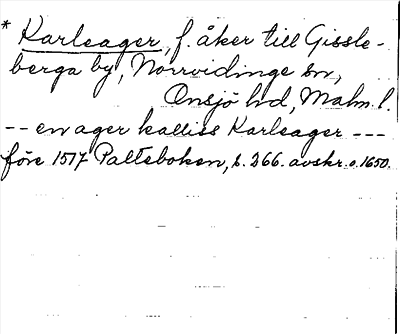 * Karlsager, f. åker till Gissle-
berga by, Norrvidinge sn,
Onsjö hd, Malm. l.
-- en ager kalliss Karlsager ---
före 1517 Palteboken, s. 266. avskr. o. 1650.